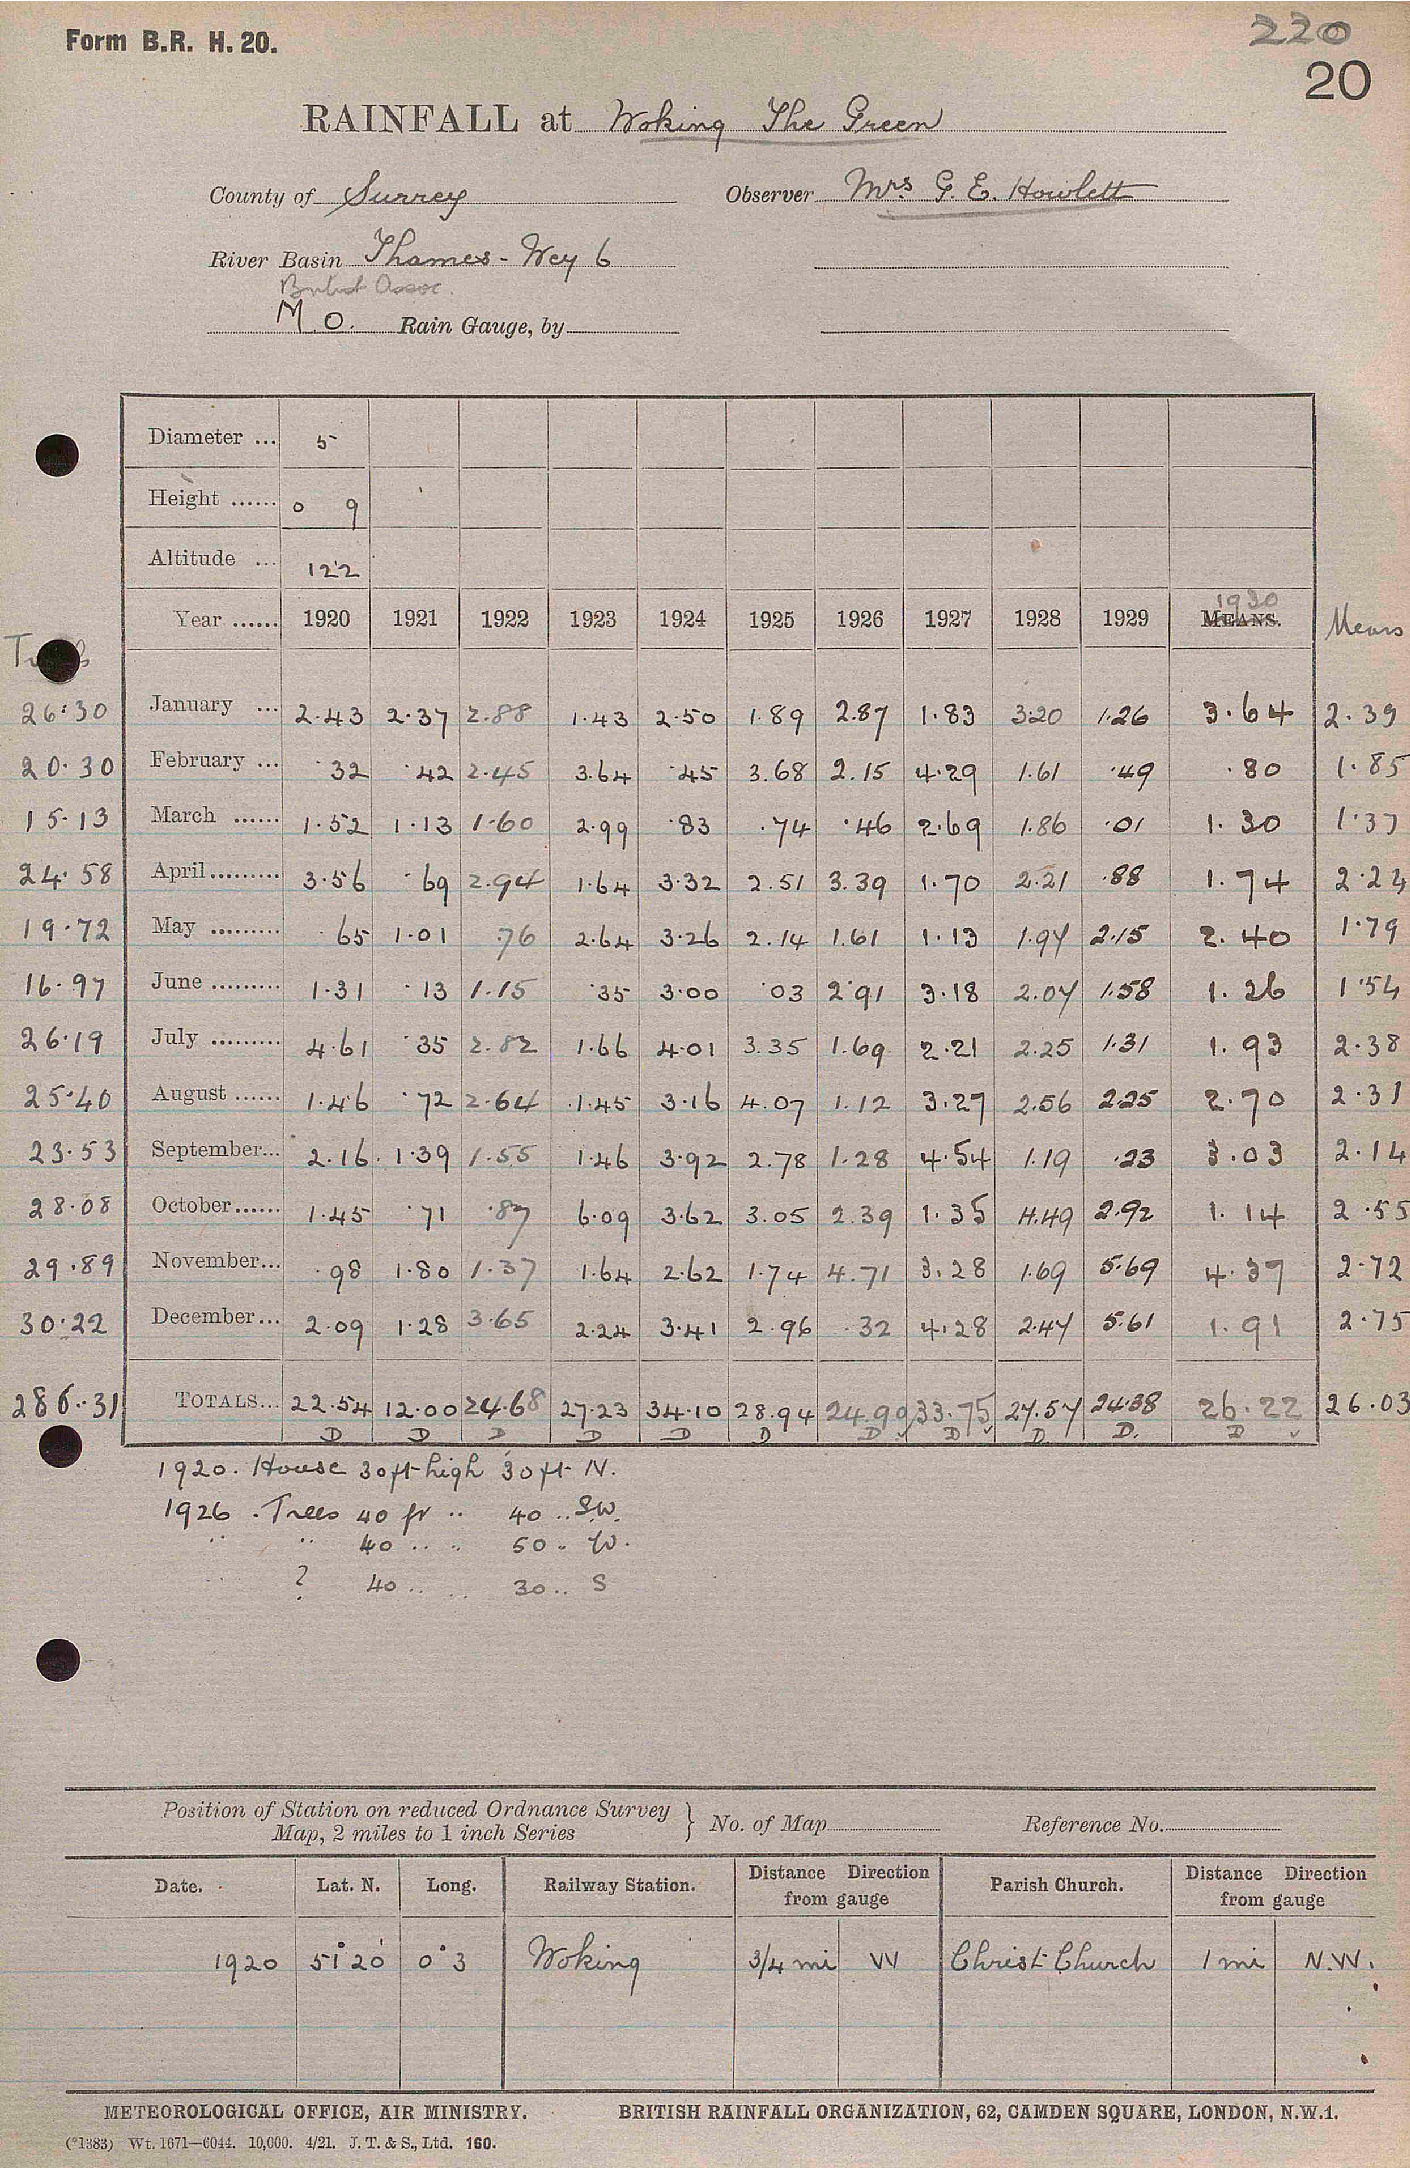 Form B.R. H. 20.
220
20
RAINFALL at Woking The Green
County of Surrey Observer Mrs G. E. Howlett
River Basin Thames - Wey 6
British Assoc.
M.O. Rain Gauge, by
Diameter ... 5
Height ...... 0 9
Altitude ... 122
Year ...... 1920 1921 1922 1923 1924 1925 1926 1927 1928 1929 1930 MEANS. Means
26.30 January ... 2.43 2.37 2.88 1.43 2.50 1.89 2.87 1.83 3.20 1.26 3.64 2.39
20.30 February ... .32 .42 2.45 3.64 .45 3.68 2.15 4.29 1.61 .49 .80 1.85
15.13 March ...... 1.52 1.13 1.60 2.99 .83 .74 .46 2.69 1.86 .01 1.30 1.37
24.58 April ......... 3.56 .69 2.94 1.64 3.32 2.51 3.39 1.70 2.21 .88 1.74 2.24
19.72 May ......... .65 1.01 .76 2.64 3.26 2.14 1.61 1.13 1.97 2.15 2.40 1.79
16.97 June ......... 1.31 .13 1.15 .35 3.00 .03 2.91 3.18 2.07 1.58 1.26 1.54
26.19 July ......... 4.61 .35 2.82 1.66 4.01 3.35 1.69 2.21 2.25 1.31 1.93 2.38
25.40 August ...... 1.46 .72 2.64 1.45 3.16 4.07 1.12 3.27 2.56 2.25 2.70 2.31
23.53 September... 2.16 1.39 1.55 1.46 3.92 2.78 1.28 4.54 1.19 .23 3.03 2.14
28.08 October ...... 1.45 .71 .87 6.09 3.62 3.05 2.39 1.35 4.49 2.92 1.14 2.55
29.89 November... .98 1.80 1.37 1.64 2.62 1.74 4.71 3.28 1.69 5.69 4.37 2.72
30.22 December ... 2.09 1.28 3.65 2.24 3.41 2.96 .32 4.28 2.47 5.61 1.91 2.75
286.31 TOTALS... 22.54 12.00 24.68 27.23 34.10 28.94 24.90 33.75 27.57 24.38 26.22 26.03
D D D D D D D D D. D. D
1920. House 30 ft high 30 ft N.
1926. Trees 40 ft " 40 .. S.W.
" " 40 .. " 50 .. W.
" ? 40 .. 30 .. S
Position of Station on reduced Ordnance Survey Map, 2 miles to 1 inch Series } No. of Map Reference No.
Date. Lat. N. Long. Railway Station. Distance Direction from gauge Parish Church. Distance Direction from gauge
1920 51° 20' 0° 3 Woking 3/4 mi W Christ Church 1 mi N.W.
METEOROLOGICAL OFFICE, AIR MINISTRY. BRITISH RAINFALL ORGANIZATION, 62, CAMDEN SQUARE, LONDON, N.W.1.
(*1383) Wt. 1671—6044. 10,000. 4/21. J. T. & S., Ltd. 160.